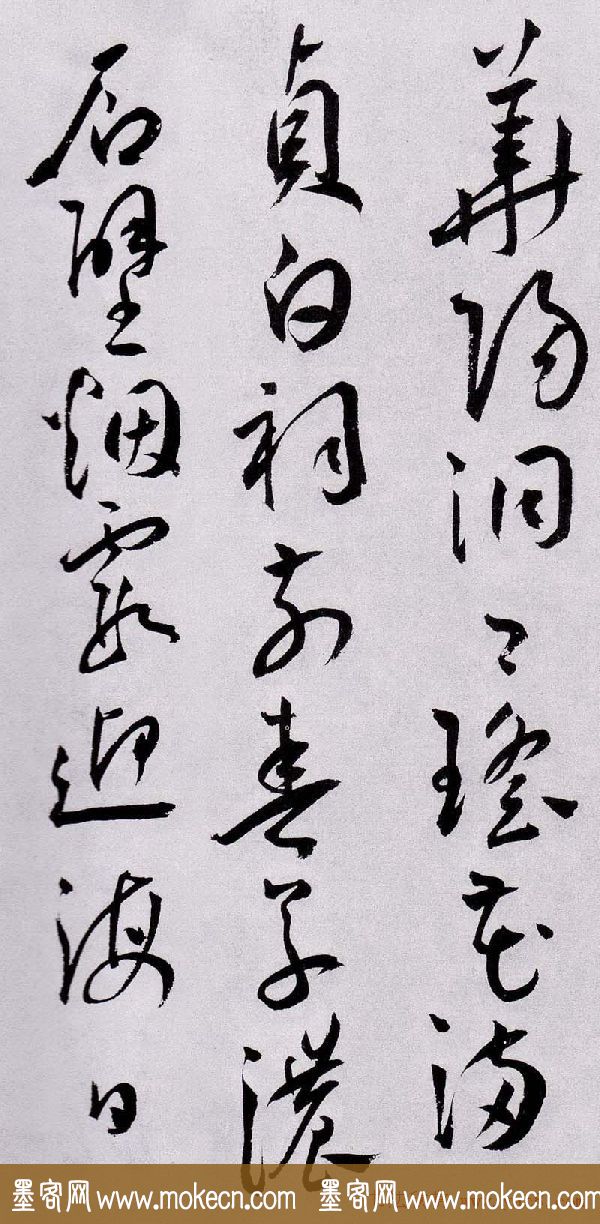 華陽洞口瑤花滿
貞白祠前春草濃
石壁烟霞迎海日
墨客网 www.mokecn.com 墨客网 www.mokecn.com